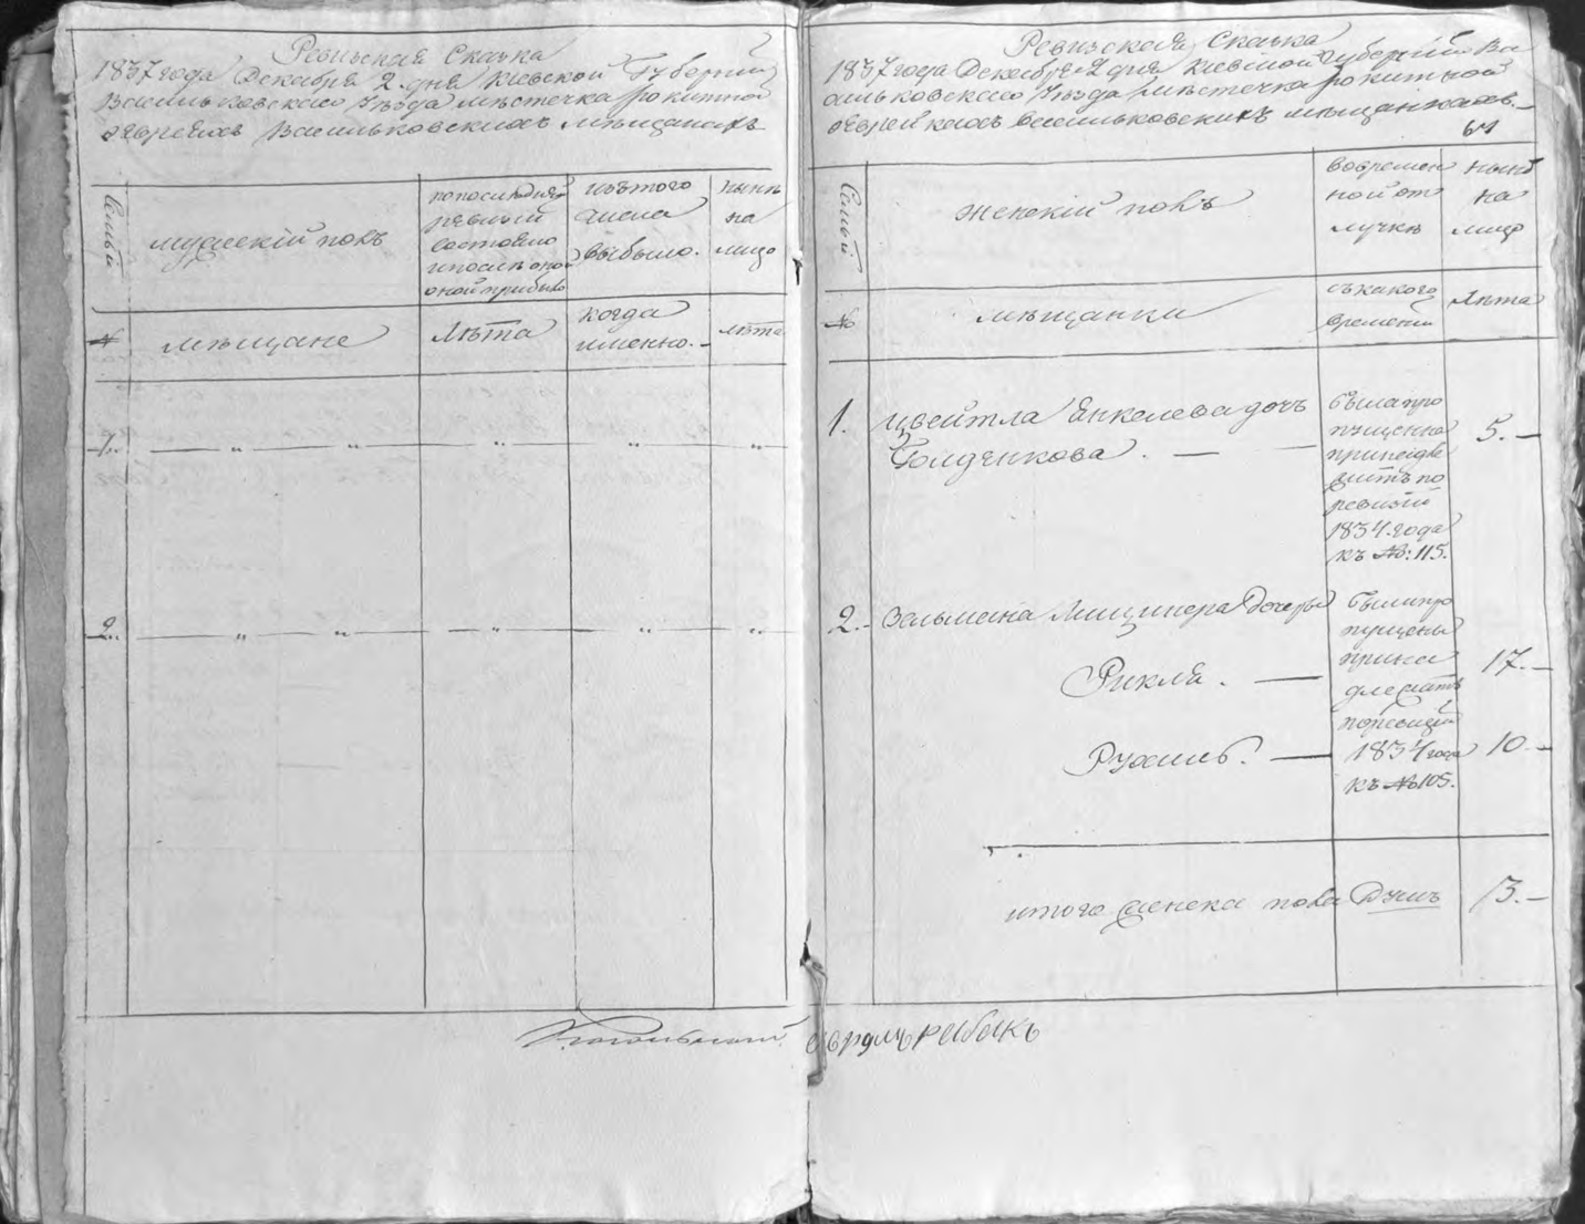 Ревизская Сказка
1837 года Декабря 2. дня Киевской Губернии
Васильковского Уезда местечка Рокитной
о Евреяхъ Васильковскихъ мещанахъ
Семьи
мужескій полъ
по последней
ревизіи
состояло
и после оно
оной прибыло
изъ того
числа
выбыло.
ныне
на
лицо
№
мещане
Лета
когда
именно.
лета
1.
2.
Ревизская Сказка
1837 года Декабря 2 дня Киевской Губерніи Ва
сильковского Уезда местечка Рокитной
о Еврейкахъ Васильковскихъ мещанкахъ.
Семьи.
женскій полъ
во времен
ной от
лучке
ныне
на
лицо
№
мещанки
съ какого
времени
Лета
1. Цвейтла Янкелева дочь
Голденкова. —
была про
пущенна
по
ревизіи
1834 года
къ №: 115.
5. —
2. Зельмана Дочеры
были про
пущены
прина
длежатъ
по ревизіи
1834 года
къ № 105.
Рикля. — 17. —
Рухль. — 10. —
итого женска пола Душъ 3. —